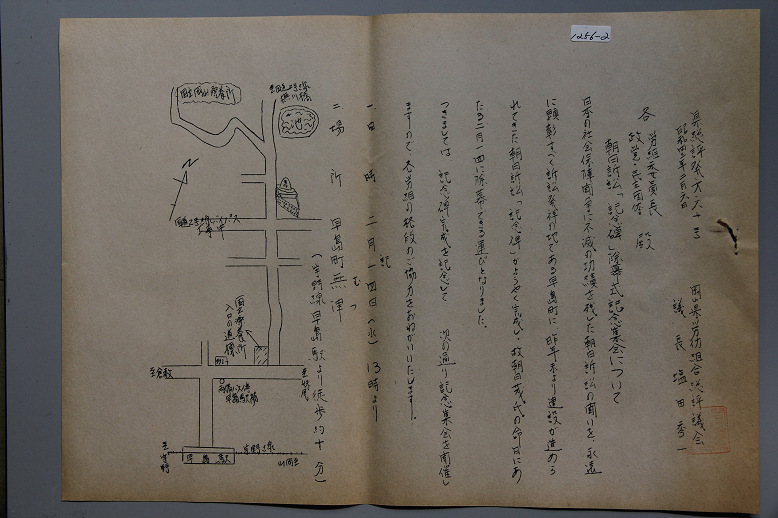 1256-2
県総評発六六十三
昭和四三年二月六日
岡山県労働組合総評議会
議長 塩田秀一
各 労組委員長
政党・民主団体 殿
朝日訴訟「記念碑」除幕式記念集会について
日本の社会保障闘争に不滅の功績を残した朝日訴訟の闘いを、永遠
に顕彰すべく訴訟発祥の地である早島町に、昨年末より建設が進めら
れてきた朝日訴訟「記念碑」がようやく完成し、故朝日茂氏の命日にあ
たる二月一四に除幕できる運びとなりました。
つきましては、記念碑完成を記念して、次の通り記念集会を開催し
ますので、各労組の格段のご協力をおねがいいたします。
記
一 日時 二月一四日(水) 13時より
二 場所 早島町無津
むつ
(宇野線早島駅より徒歩約十分)
国立岡山療養所
池
国道2号線バイパス
工事中
国立療養所
入口の道標
至倉敷
至妹尾
早島駅
宇野線
至岡山